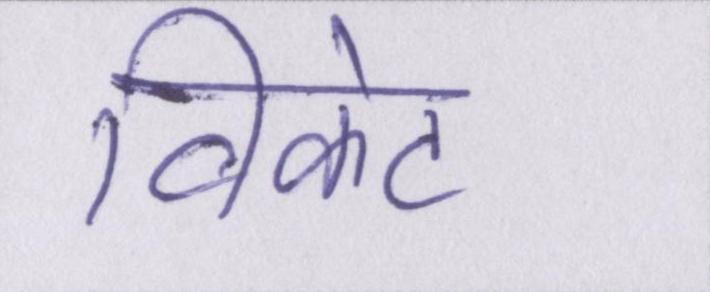 विकेट